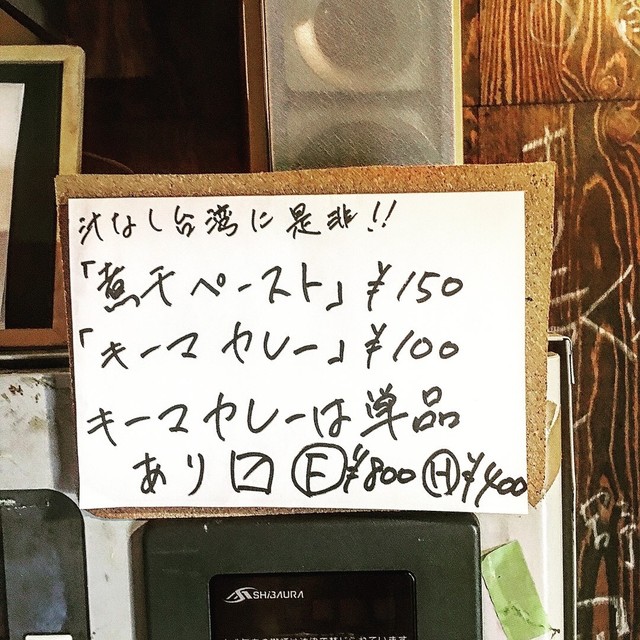 汁なし台湾に是非!!
「煮干ペースト」¥150
「キーマカレー」¥100
キーマカレーは単品
あり〼 Ⓕ¥800 Ⓗ¥400
SHIBAURA